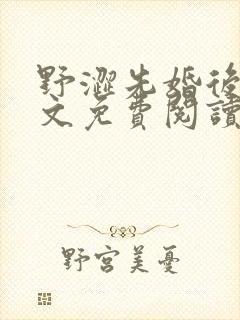 野澀先婚後
文免費閱讀
野宮美憂